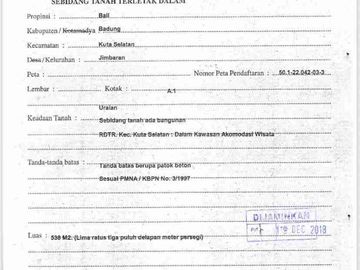 SEBIDANG TANAH TERLETAK DALAM
Propinsi : Bali
Kabupaten / Kotamadya Badung
Kecamatan : Kuta Selatan
Desa / Kelurahan : Jimbaran
Peta : Nomor Peta Pendaftaran : 50.1-22.042-03-3
Lembar : Kotak : A.1
Uraian
Keadaan Tanah : Sebidang tanah ada bangunan
RDTR. Kec. Kuta Selatan : Dalam Kawasan Akomodasi Wisata
Tanda-tanda batas : Tanda batas berupa patok beton
Sesuai PMNA / KBPN No. 3/1997
DIJAMINKAN
19 DEC 2018
Luas : 538 M2. (Lima ratus tiga puluh delapan meter persegi)